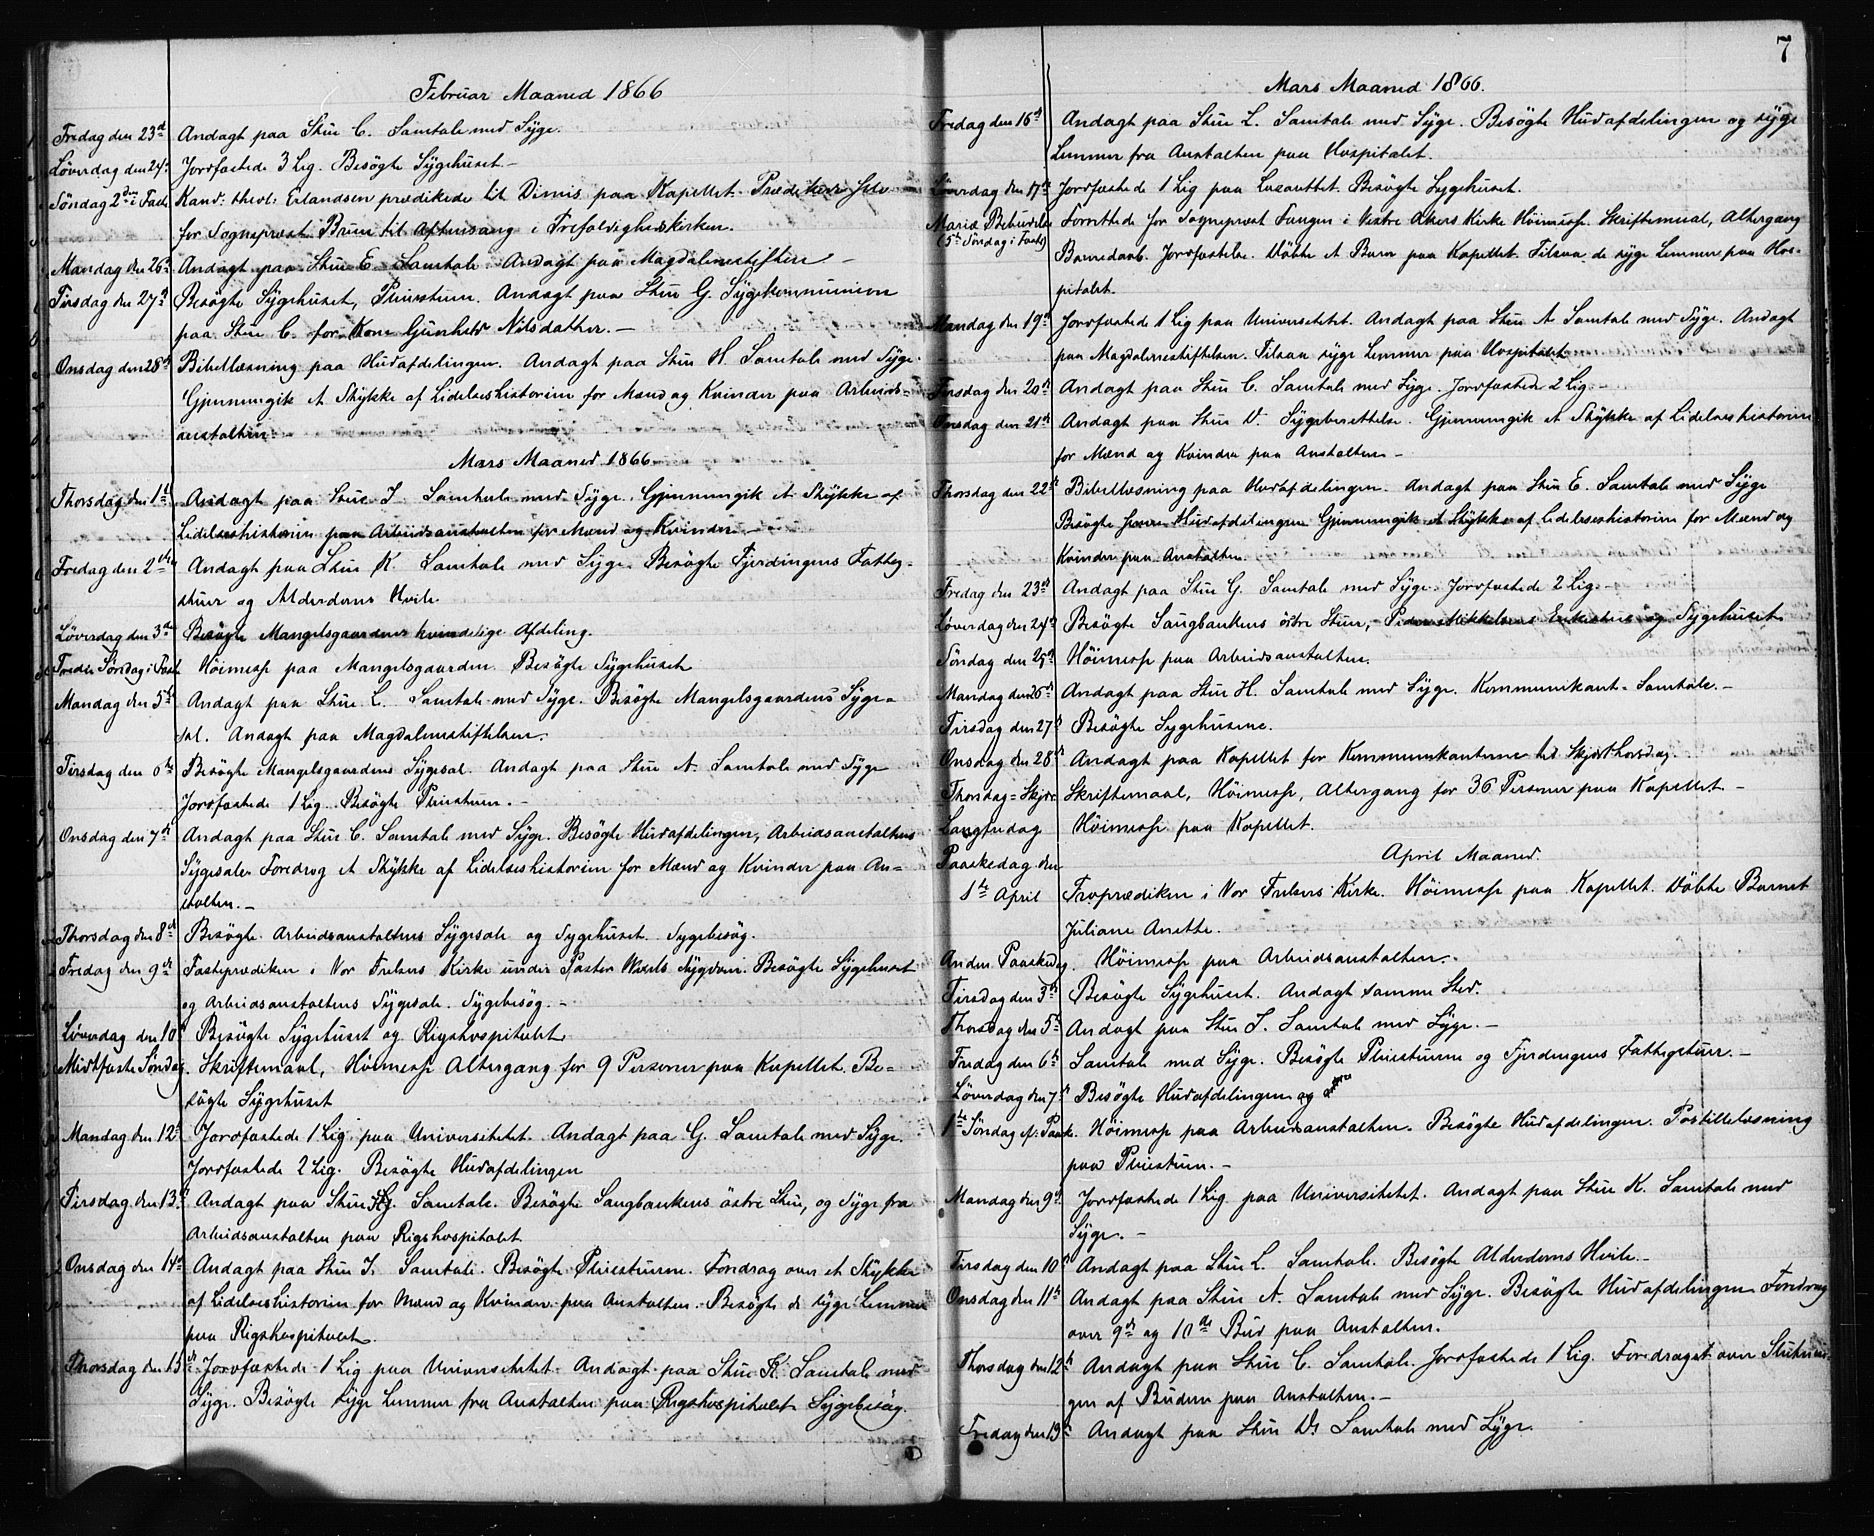 Februar Maaned 1866
Fredag den 23de Andagt paa Stue C. Samtale med Syge.
Løverdag den 24de Jordfæstede 3 Lig. Besøgte Sygehuset –
Søndag 2den i Faste Kand: theol: Erlandsen prædikede til Dimis paa Kapellet. Prædikede selv
for Sognepræst Bruun til Aftensang i Trefoldighedskirken.
Mandag den 26de Andagt paa Stue E. Samtale. Andagt paa Magdalenestiftelsen –
Tirsdag den 27de Besøgte Sygehuset, Pleiestuen. Andagt paa Stue G. Sygekommunion
paa Stue C. for Kone Gunhild Nilsdatter. –
Onsdag den 28de Bibellæsning paa Hudafdelingen. Andagt paa Stue H. Samtale med Syge.
Gjennemgik et Stykke af Lidelseshistorien for Mænd og Kvinder paa Arbeids=
anstalten.
Mars Maaned 1866
Thorsdag den 1ste Andagt paa Stue I. Samtale med Syge. Gjennemgik et Stykke af
Lidelseshistorien paa Arbeidsanstalten for Mænd og Kvinder –
Fredag den 2den Andagt paa Stue K. Samtale med Syge. Besøgte Fjerdingens Fattig-
stuer og Alderdoms Hvile.
Løverdag den 3die Besøgte Mangelsgaardens kvindelige Afdeling.
Tredie Søndag i Faste Høimesse paa Mangelsgaarden. Besøgte Sygehuset
Mandag den 5te Andagt paa Stue L. Samtale med Syge. Besøgte Mangelsgaardens Syge=
sal. Andagt paa Magdalenestiftelsen.
Tirsdag den 6te Besøgte Mangelsgaardens Sygesal. Andagt paa Stue A. Samtale med Syge
Jordfæstede 1 Lig. Besøgte Pleiestuen. –
Onsdag den 7de Andagt paa Stue C. Samtale med Syge. Besøgte Hudafdelingen, Arbeidsanstaltens
Sygesale. Foredrog et Stykke af Lidelseshistorien for Mænd og Kvinder paa An=
stalten. –
Thorsdag den 8de Besøgte Arbeidsanstaltens Sygesale og Sygehuset. Sygebesøg.
Fredag den 9de Fasteprædiken i Vor Frelsers Kirke under Pastor Wexels Sygdom. Besøgte Sygehuset
og Arbeidsanstaltens Sygesale. Sygebesøg. –
Løverdag den 10de Besøgte Sygehuset og Rigshospitalet
Midtfaste Søndag. Skriftemaal, Høimesse Altergang for 9 Personer paa Kapellet. Be=
søgte Sygehuset
Mandag den 12te Jordfæstede 1 Lig paa Universitetet. Andagt paa G. Samtale med Syge.
Jordfæstede 2 Lig. Besøgte Hudafdelingen
Tirsdag den 13de Andagt paa Stue H. Samtale. Besøgte Sangbankens østre Stue, og Syge fra
Arbeidsanstalten paa Rigshospitalet
Onsdag den 14de Andagt paa Stue I. Samtale. Besøgte Pleiestuerne. Foredrag over et Stykke
af Lidelseshistorien for Mænd og Kvinder paa Anstalten. Besøgte de syge Lemmer
paa Rigshospitalet.
Thorsdag den 15de Jordfæstede 1 Lig paa Universitetet. Andagt paa Stue K. Samtale med
Syge. Besøgte syge Lemmer fra Anstalten paa Rigshospitalet Sygebesøg.
7
Mars Maaned 1866.
Fredag den 16de Andagt paa Stue L. Samtale med Syge. Besøgte Hudafdelingen og syge
Lemmer fra Anstalten paa Hospitalet.
Løverdag den 17de Jordfæstede 1 Lig paa Lazarettet. Besøgte Sygehuset.
Mariæ Bebudelse Forrettede for Sognepræst Fangen i Vestre Akers Kirke Høimesse. Skriftemaal, Altergang
(5te Søndag i Faste) Barnedaab. Jordfæstelse. Døbte et Barn paa Kapellet. Tilsaa de syge Lemmer paa Hos-
pitalet.
Mandag den 19de Jordfæstede 1 Lig paa Universitetet. Andagt paa Stue A Samtale med Syge. Andagt
paa Magdalenestiftelsen. Tilsaa syge Lemmer paa Hospitalet
Tirsdag den 20de Andagt paa Stue C. Samtale med Syge. Jordfæstede 2 Lig –
Onsdag den 21de Andagt paa Stue D. Sygeberettelse. Gjennemgik et Stykke af Lidelseshistorien
for Mænd og Kvinder paa Anstalten –
Thorsdag den 22de Bibellæsning paa Hudafdelingen. Andagt paa Stue E. Samtale med Syge
Besøgte Hudafdelingen Gjennemgik et Stykke af Lidelseshistorien for Mænd og
Kvinder paa Anstalten
Fredag den 23de Andagt paa Stue G. Samtale med Syge. Jordfæstede 2 Lig
Løverdag den 24de Besøgte Sangbankens østre Stue, Peder Mikkelsens Enkestue og Sygehuset
Søndag den 25de Høimesse paa Arbeidsanstalten.
Mandag den 26de Andagt paa Stue H. Samtale med Syge. Kommunikant-Samtale. –
Tirsdag den 27de Besøgte Sygehusene.
Onsdag den 28de Andagt paa Kapellet for Kommunikanterne til Skjærthorsdag.
Thorsdag = Skjær Skriftemaal, Høimesse, Altergang for 36 Personer paa Kapellet –
Langfredag Høimesse paa Kapellet.
April Maaned.
Paaskedag den
1te April Froprædiken i Vor Frelsers Kirke. Høimesse paa Kapellet. Døbte Barnet
Juliane Anette.
Anden Paaskedag. Høimesse paa Arbeidsanstalten.
Tirsdag den 3die Besøgte Sygehuset. Andagt samme Sted.
Thorsdag den 5te Andagt paa Stue I. Samtale med Syge. –
Fredag den 6te Samtale med Syge. Besøgte Pleiestuerne og Fjerdingens Fattigstuer. –
Løverdag den 7de Besøgte Hudafdelingen og
1te Søndag ef: Paaske. Høimesse paa Arbeidsanstalten. Besøgte Hudafdelingen. Postillelæsning
paa Pleiestuen. –
Mandag den 9de Jordfæstede 1 Lig paa Universitetet. Andagt paa Stue K. Samtale med
Syge. –
Tirsdag den 10de Andagt paa Stue L. Samtale. Besøgte Alderdoms Hvile –
Onsdag den 11te Andagt paa Stue A. Samtale med Syge. Besøgte Hudafdelingen Foredrag
over 9de og 10de Bud paa Anstalten.
Thorsdag den 12te Andagt paa Stue C. Samtale. Jordfæstede 1 Lig. Foredraget over Slutnin-
gen af Budene paa Anstalten. –
Fredag den 13de Andagt paa Stue D. Samtale med Syge.